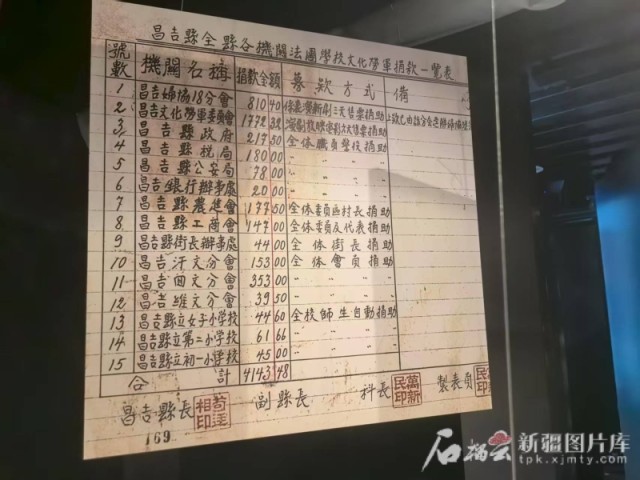 昌吉縣全縣各機關法團學校文化勞軍捐款一覽表
號數 機關名稱 捐款金額 募款方式 備
1 昌吉婦協18分會 810 40
2 昌吉文化勞軍委員會 1772 32
3 昌吉縣政府 217 50 全体職員登投捐助
4 昌吉縣稅局 180 00 〃 〃
5 昌吉縣公安局 78 00 〃 〃
6 昌吉銀行辦事處 20 00 〃 〃
7 昌吉縣農建會 177 50 全体委員區村長捐助
8 昌吉縣工商會 147 00 全体委員及代表捐助
9 昌吉縣街長辦事處 44 00 全体街長捐助
10 昌吉汗文分會 153 00 全体會員捐助
11 昌吉回文分會 353 00 〃 〃
12 昌吉維文分會 39 50 〃 〃
13 昌吉縣立女子小學校 44 60 全校師生自動捐助
14 昌吉縣立第二小學校 61 66 〃 〃
15 昌吉縣立初一小學校 45 00 〃 〃
合計 4143 48
昌吉縣長 副縣長 科長 製表員
169
石榴云
新疆图片库
tpk.xjmty.com